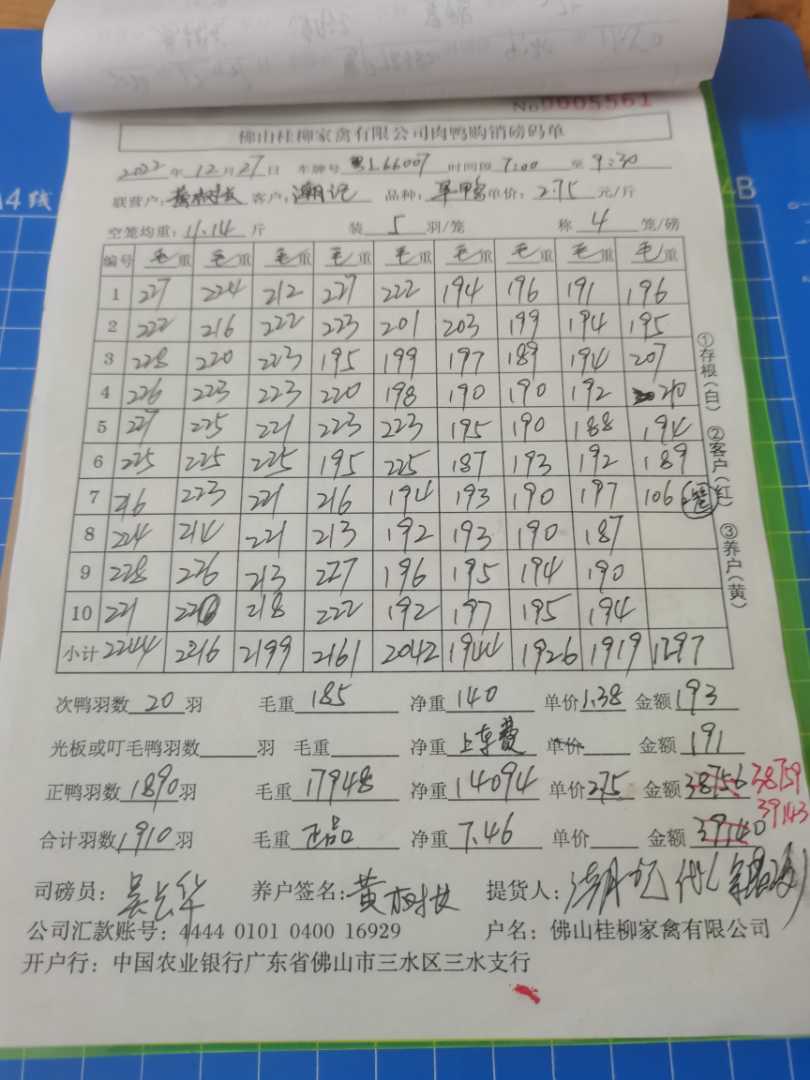 No0005561
佛山桂柳家禽有限公司肉鸭购销磅码单
2022年12月27日 车牌号 粤L66007 时间段 7:00 至 9:30
联营户: 客户: 潮记 品种: 单价: 2.75 元/斤
空笼均重: 11.14 斤 装 5 羽/笼 称 4 笼/磅
编号 毛重 毛重 毛重 毛重 毛重 毛重 毛重 毛重 毛重
1 227 224 212 227 222 194 196 191 196
2 222 216 222 223 201 203 199 194 195
3 228 220 223 195 199 197 189 194 207
4 226 223 223 220 198 190 190 192 210
5 227 225 221 223 223 195 190 188 194
6 225 225 225 195 225 187 193 192 189
7 216 223 221 216 194 193 190 197 106
8 224 214 221 213 192 193 190 187
9 228 226 213 227 196 195 194 190
10 221 220 218 222 192 197 195 194
小计 2244 2216 2199 2161 2042 1944 1926 1919 1297
①存根(白) ②客户(红) ③养户(黄)
次鸭羽数 20 羽 毛重 185 净重 140 单价 1.38 金额 193
光板或叮毛鸭羽数 羽 毛重 净重 上车费 单价 金额 191
正鸭羽数 1890 羽 毛重 17948 净重 14094 单价 2.75 金额 38756 38759
39143
合计羽数 1910 羽 毛重 正品 净重 7.46 单价 金额 39140
司磅员: 养户签名: 提货人: 潮记
公司汇款账号: 4444 0101 0400 16929 户名: 佛山桂柳家禽有限公司
开户行: 中国农业银行广东省佛山市三水区三水支行
A4线
4B